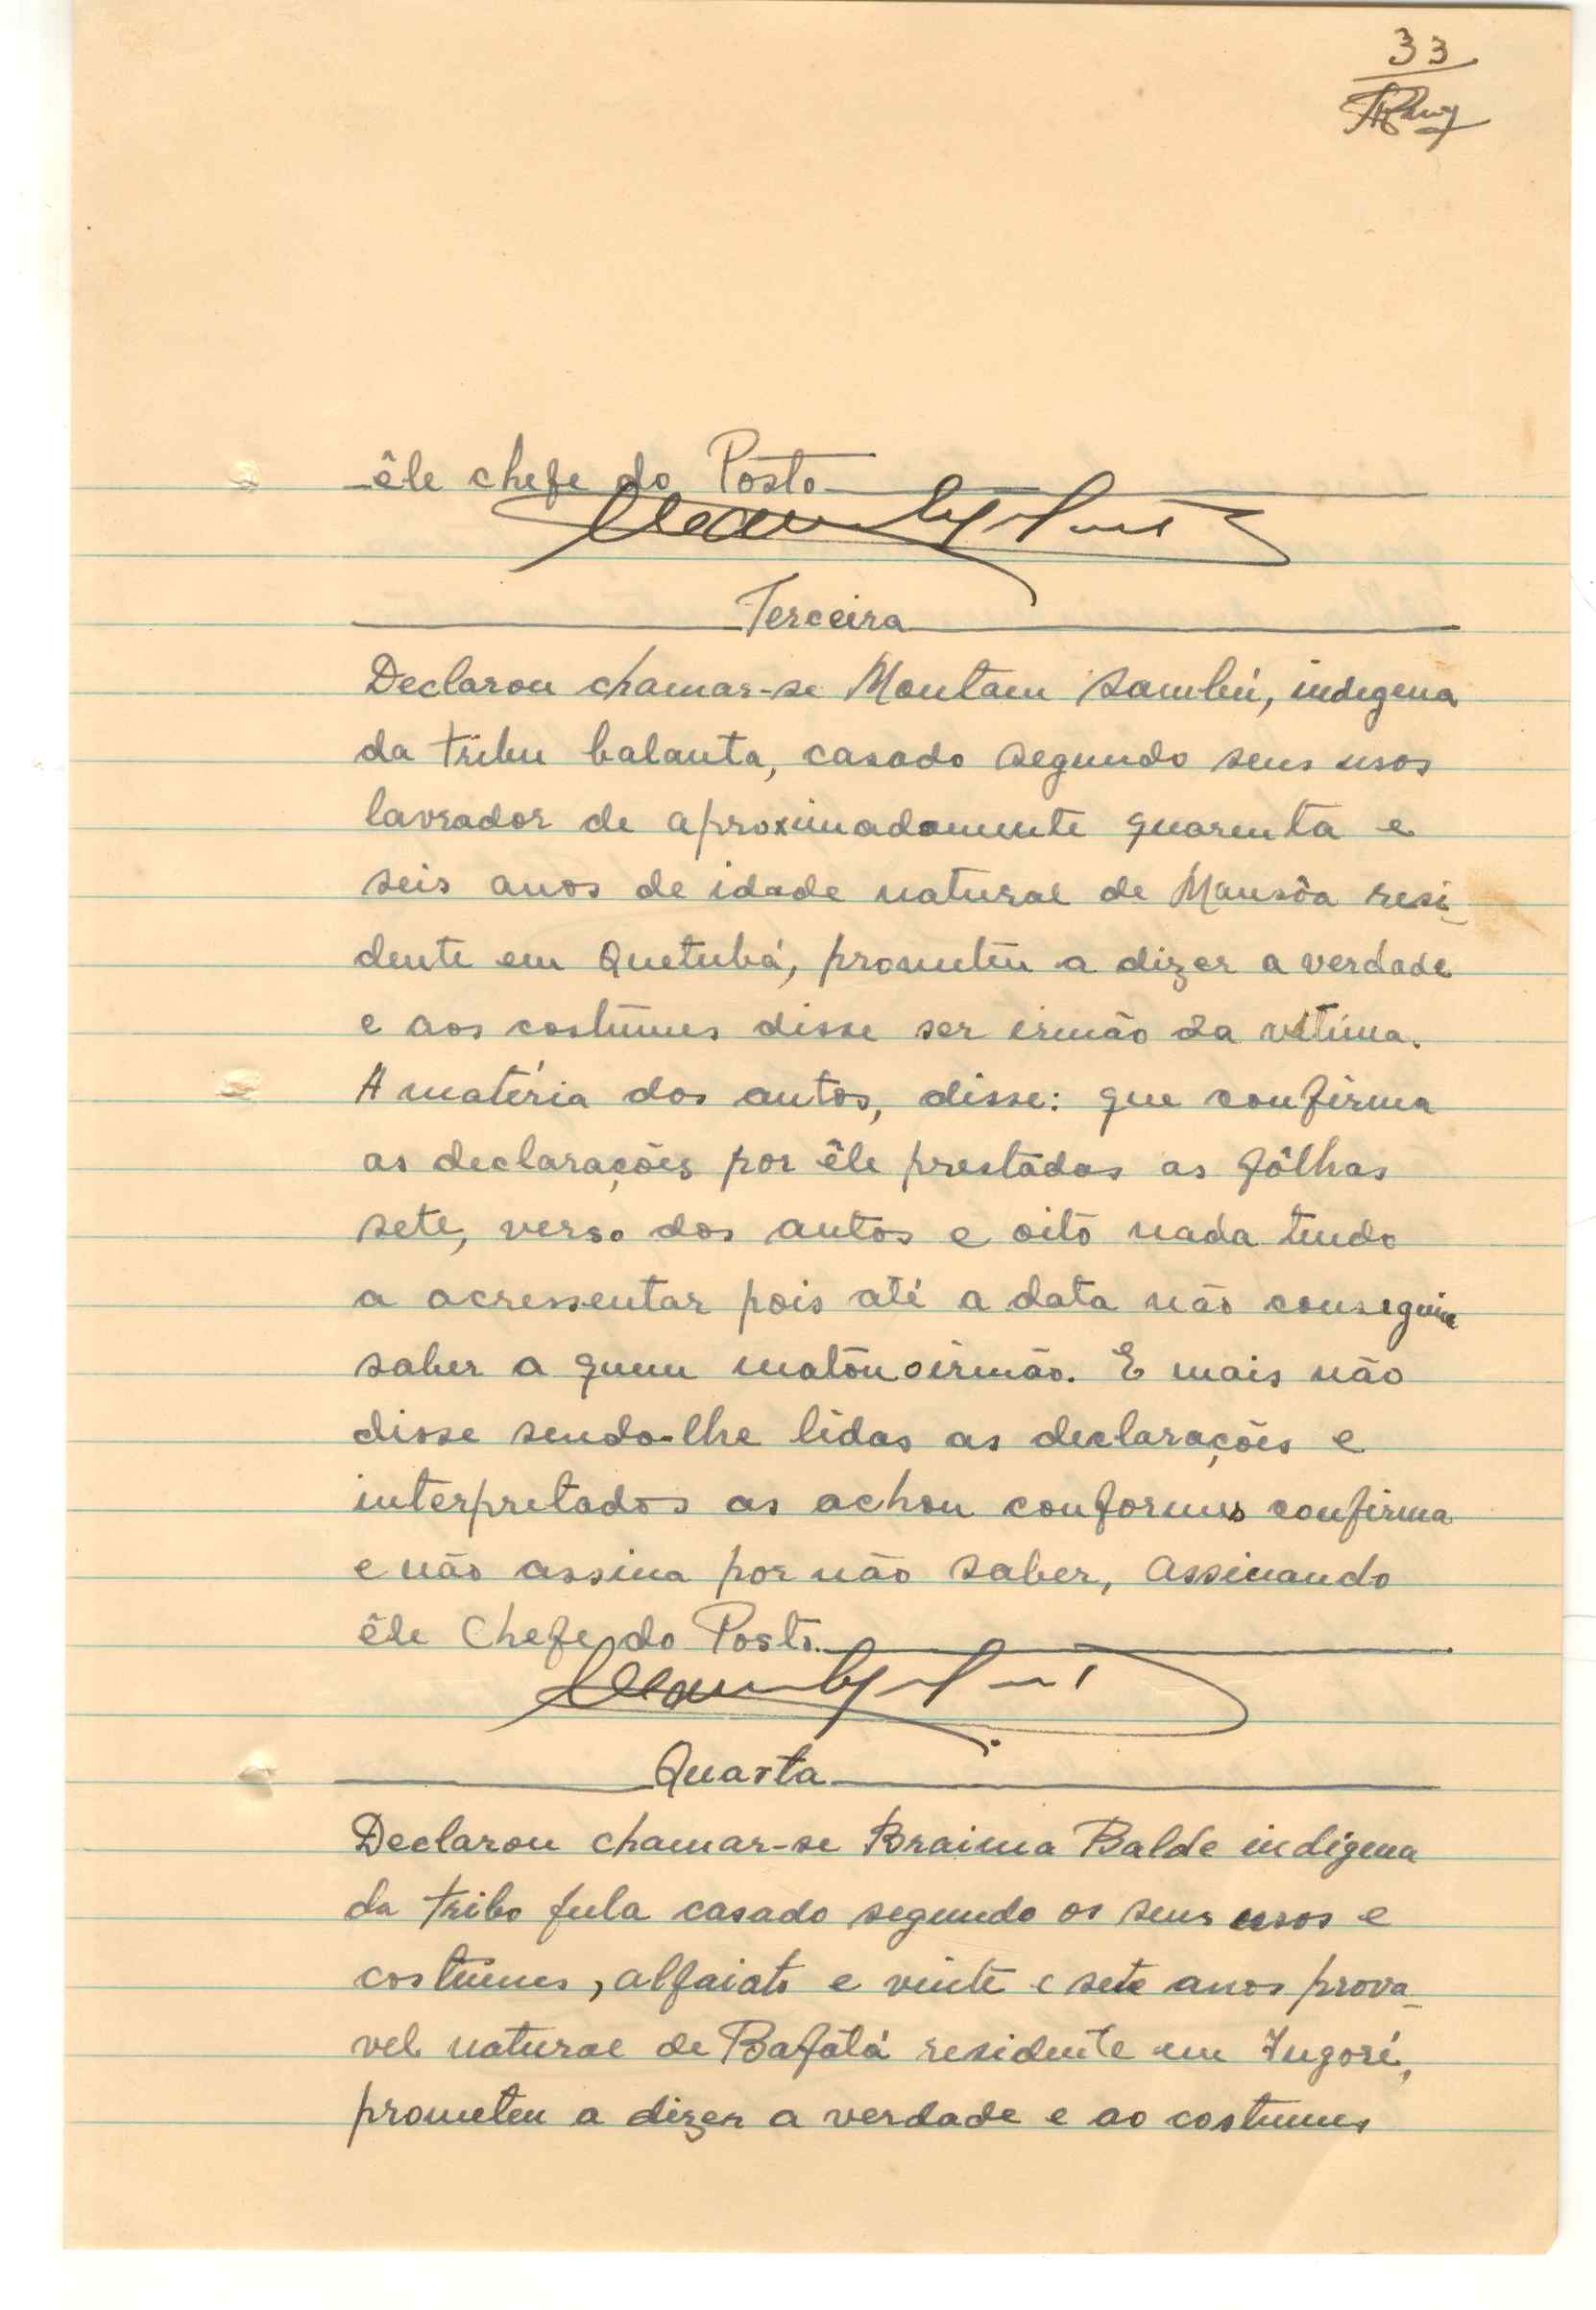 33
êle chefe do Posto
Terceira
Declarou chamar-se Montam Sambú, indegena
da tribu balanta, casado segundo seus usos
lavrador de aproximadamente quarenta e
seis anos de idade natural de Mansôa resi-
dente em Quetubá, prometeu a dizer a verdade
e aos costumes disse ser irmão da vitima.
A matéria dos autos, disse: que confirma
as declarações por êle prestadas as fôlhas
sete, verso dos autos e oito nada tendo
a acressentar pois até a data não conseguiu
saber a quem matou o irmão. E mais não
disse sendo-lhe lidas as declarações e
interpretados as achou conformes confirma
e não assina por não saber, assinando
êle Chefe do Posto.
Quarta
Declarou chamar-se Braima Balde indigena
da tribo fula casado segundo os seus usos e
costumes, alfaiate e vinte e sete anos prova-
vel natural de Bafatá residente em Ingoré,
prometeu a dizer a verdade e ao costumes